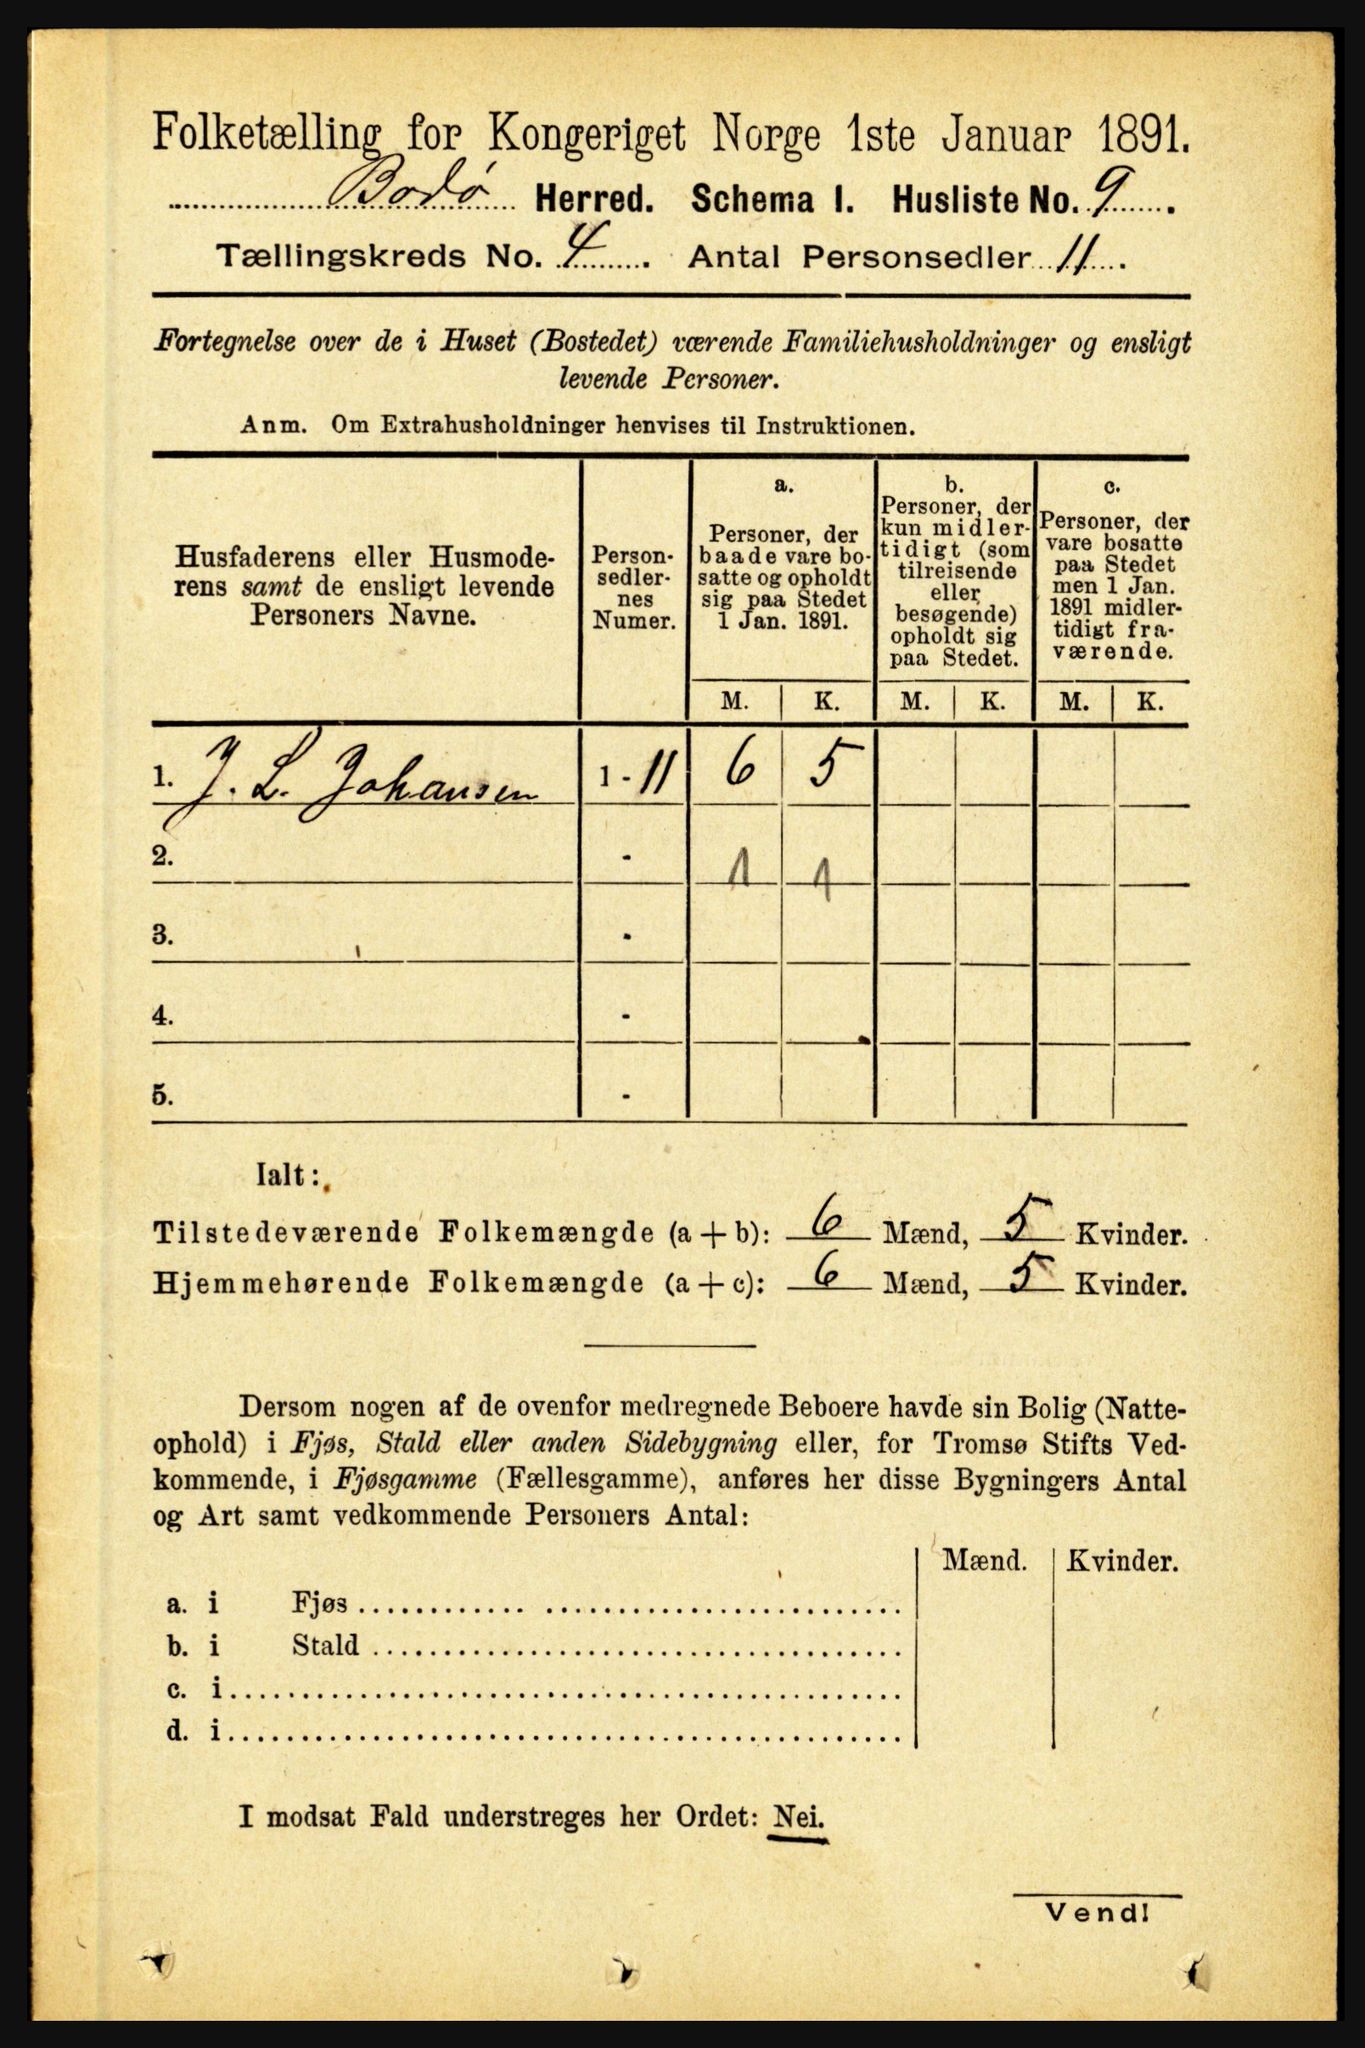 Folketælling for Kongeriget Norge 1ste Januar 1891.
Bodø Herred. Schema I. Husliste No. 9.
Tællingskreds No. 4. Antal Personsedler 11.
Fortegnelse over de i Huset (Bostedet) værende Familiehusholdninger og ensligt
levende Personer.
Anm. Om Extrahusholdninger henvises til Instruktionen.
Husfaderens eller Husmode-
rens samt de ensligt levende
Personers Navne.
Person-
sedler-
nes
Numer.
a.
Personer, der
baade vare bo-
satte og opholdt
sig paa Stedet
1 Jan. 1891.
b.
Personer, der
kun midler-
tidigt (som
tilreisende
eller
besøgende)
opholdt sig
paa Stedet.
c.
Personer, der
vare bosatte
paa Stedet
men 1 Jan.
1891 midler-
tidigt fra-
værende.
M. K. M. K. M. K.
1. J. L. Johansen 1 - 11 6 5
2. - 1 1
3. -
4. -
5. -
Ialt:
Tilstedeværende Folkemængde (a + b): 6 Mænd, 5 Kvinder.
Hjemmehørende Folkemængde (a + c): 6 Mænd, 5 Kvinder.
Dersom nogen af de ovenfor medregnede Beboere havde sin Bolig (Natte-
ophold) i Fjøs, Stald eller anden Sidebygning eller, for Tromsø Stifts Ved-
kommende, i Fjøsgamme (Fællesgamme), anføres her disse Bygningers Antal
og Art samt vedkommende Personers Antal:
Mænd. Kvinder.
a. i Fjøs
b. i Stald
c. i
d. i
I modsat Fald understreges her Ordet: Nei.
Vend!